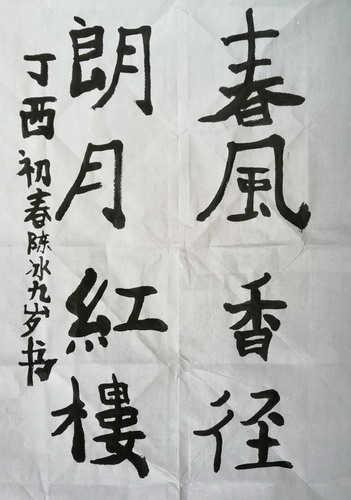 春風香径
朗月紅樓
丁酉初春陈冰九岁书